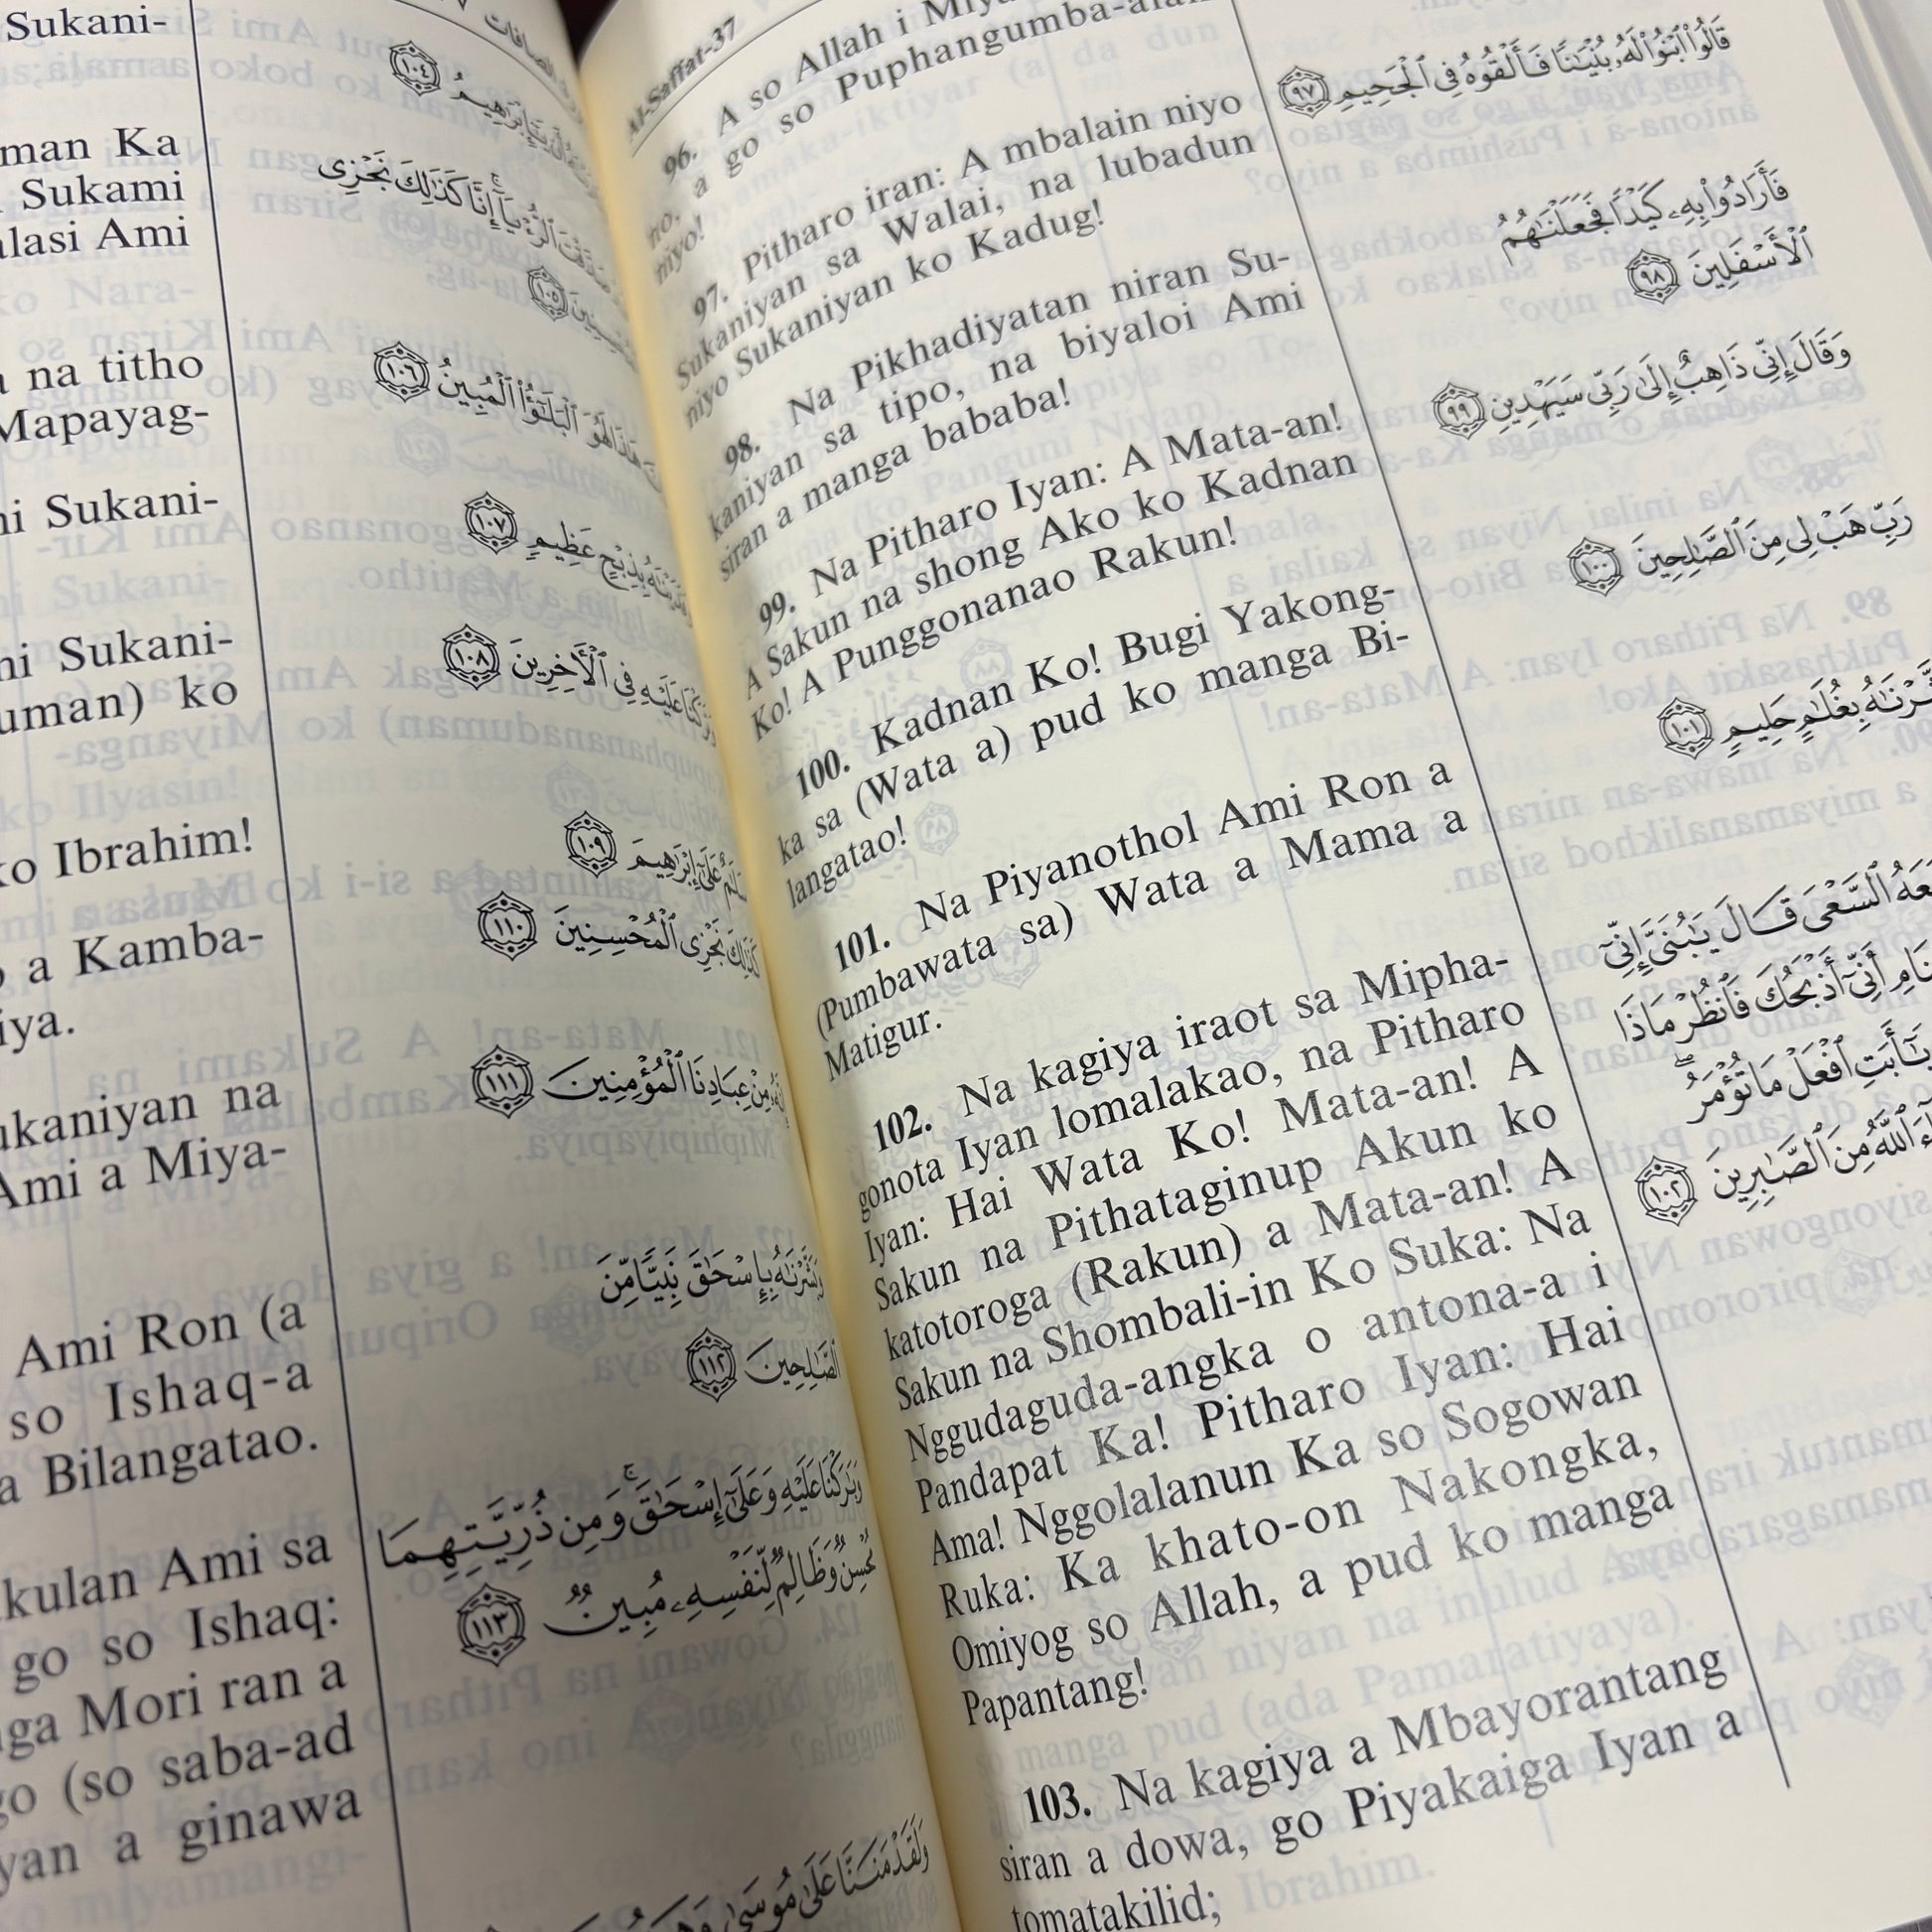 Sukani-
man Ka
Sukami
alasi Ami
na titho
Mapayag-
Sukani-
Sukani-
uman) ko
ko Ibrahim!
a Kamba-
iya.
ukaniyan na
Ami a Miya-
Ami Ron (a
so Ishaq-a
a Bilangatao.
kulan Ami sa
go so Ishaq:
Mori ran a
(so saba-ad
a ginawa
الصافات
﴿١٠٤﴾
إِنَّا كَذَٰلِكَ نَجْزِى
﴿١٠٥﴾
هَٰذَا لَهُوَ ٱلْبَلَٰٓؤُا۟ ٱلْمُبِينُ ﴿١٠٦﴾
بِذِبْحٍ عَظِيمٍ ﴿١٠٧﴾
وَتَرَكْنَا عَلَيْهِ فِى ٱلْـَٔاخِرِينَ ﴿١٠٨﴾
سَلَٰمٌ عَلَىٰٓ إِبْرَٰهِيمَ ﴿١٠٩﴾
كَذَٰلِكَ نَجْزِى ٱلْمُحْسِنِينَ ﴿١١٠﴾
مِنْ عِبَادِنَا ٱلْمُؤْمِنِينَ ﴿١١١﴾
وَبَشَّرْنَٰهُ بِإِسْحَٰقَ نَبِيًّا مِّنَ
ٱلصَّٰلِحِينَ ﴿١١٢﴾
وَبَٰرَكْنَا عَلَيْهِ وَعَلَىٰٓ إِسْحَٰقَ ۚ وَمِن ذُرِّيَّتِهِمَا
مُحْسِنٌ وَظَالِمٌ لِّنَفْسِهِۦ مُبِينٌ ﴿١١٣﴾
وَلَقَدْ مَنَنَّا عَلَىٰ مُوسَىٰ
Al-Saffat-37
96. A so Allah i
no, a go so Puphangumba-alan
niyo!
97. Pitharo iran: A mbalain niyo
Sukaniyan sa Walai, na lubadun
niyo Sukaniyan ko Kadug!
98. Na Pikhadiyatan niran Su-
kaniyan sa tipo, na biyaloi Ami
siran a manga bababa!
99. Na Pitharo Iyan: A Mata-an!
A Sakun na shong Ako ko Kadnan
Ko! A Punggonanao Rakun!
100. Kadnan Ko! Bugi Yakong-
ka sa (Wata a) pud ko manga Bi-
langatao!
101. Na Piyanothol Ami Ron a
(Pumbawata sa) Wata a Mama a
Matigur.
102. Na kagiya iraot sa Mipha-
gonota Iyan lomalakao, na Pitharo
Iyan: Hai Wata Ko! Mata-an! A
Sakun na Pithataginup Akun ko
katotoroga (Rakun) a Mata-an! A
Sakun na Shombali-in Ko Suka: Na
Nggudaguda-angka o antona-a i
Pandapat Ka! Pitharo Iyan: Hai
Ama! Nggolalanun Ka so Sogowan
Ruka: Ka khato-on Nakongka,
Omiyog so Allah, a pud ko manga
Papantang!
103. Na kagiya a Mbayorantang
siran a dowa, go Piyakaiga Iyan a
tomatakilid;
قَالُوا۟ ٱبْنُوا۟ لَهُۥ بُنْيَٰنًا فَأَلْقُوهُ فِى ٱلْجَحِيمِ ﴿٩٧﴾
فَأَرَادُوا۟ بِهِۦ كَيْدًا فَجَعَلْنَٰهُمُ
ٱلْأَسْفَلِينَ ﴿٩٨﴾
وَقَالَ إِنِّى ذَاهِبٌ إِلَىٰ رَبِّى سَيَهْدِينِ ﴿٩٩﴾
رَبِّ هَبْ لِى مِنَ ٱلصَّٰلِحِينَ ﴿١٠٠﴾
بِغُلَٰمٍ حَلِيمٍ ﴿١٠١﴾
ٱلسَّعْىَ قَالَ يَٰبُنَىَّ إِنِّىٓ
أَنِّىٓ أَذْبَحُكَ فَٱنظُرْ مَاذَا
يَٰٓأَبَتِ ٱفْعَلْ مَا تُؤْمَرُ ۖ
ٱللَّهُ مِنَ ٱلصَّٰبِرِينَ ﴿١٠٢﴾